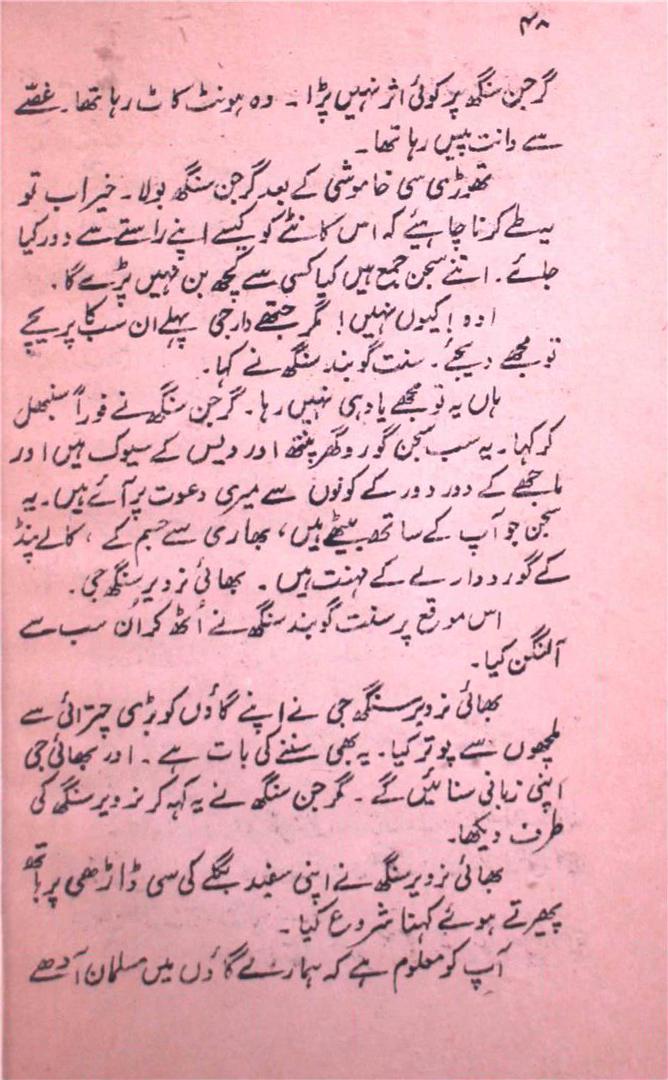 ۴۸
گرجن سنگھ پر کوئی اثر نہیں پڑا ۔ وہ ہونٹ کاٹ رہا تھا۔ غصّے
سے دانت پیس رہا تھا ۔
تھوڑی سی خاموشی کے بعد گرجن سنگھ بولا ۔ خیر اب تو
یہ طے کرنا چاہیئے کہ اس کانٹے کو کیسے اپنے راستے سے دور کیا
جائے ۔ اتنے سجن جمع ہیں کیا کسی سے کچھ بن نہیں پڑے گا ۔
اوہ ! کیوں نہیں ! مگر جتھے دار جی پہلے ان سب کا پریچے
تو مجھے دیجئے ۔ سنت گو بند سنگھ نے کہا ۔
ہاں یہ تو مجھے یاد ہی نہیں رہا ۔ گرجن سنگھ نے فوراً سنبھل
کر کہا ۔ یہ سب سجن گورو گھر پنتھ اور دیس کے سیوک ہیں اور
ماجھے کے دور دور کے کونوں سے میری دعوت پر آئے ہیں ۔ یہ
سجن جو آپ کے ساتھ بیٹھے ہیں ، بھاری سے جسم کے ، کالے پنڈ
کے گوردوارے کے مہنت ہیں ۔ بھائی نرویر سنگھ جی ۔
اس موقع پر سنت گو بند سنگھ نے اُٹھ کر اُن سب سے
آلنگن کیا ۔
بھائی نرویر سنگھ جی نے اپنے گاؤں کو بڑی چترائی سے
ملیچھوں سے پوتر کیا ۔ یہ بھی سننے کی بات ہے ۔ اور بھائی جی
اپنی زبانی سنائیں گے ۔ گرجن سنگھ نے یہ کہہ کر نرویر سنگھ کی
طرف دیکھا ۔
بھائی نرویر سنگھ نے اپنی سفید بگلے کی سی ڈاڑھی پر ہاتھ
پھیرتے ہوئے کہنا شروع کیا ۔
آپ کو معلوم ہے کہ ہمارے گاؤں میں مسلمان آدھے